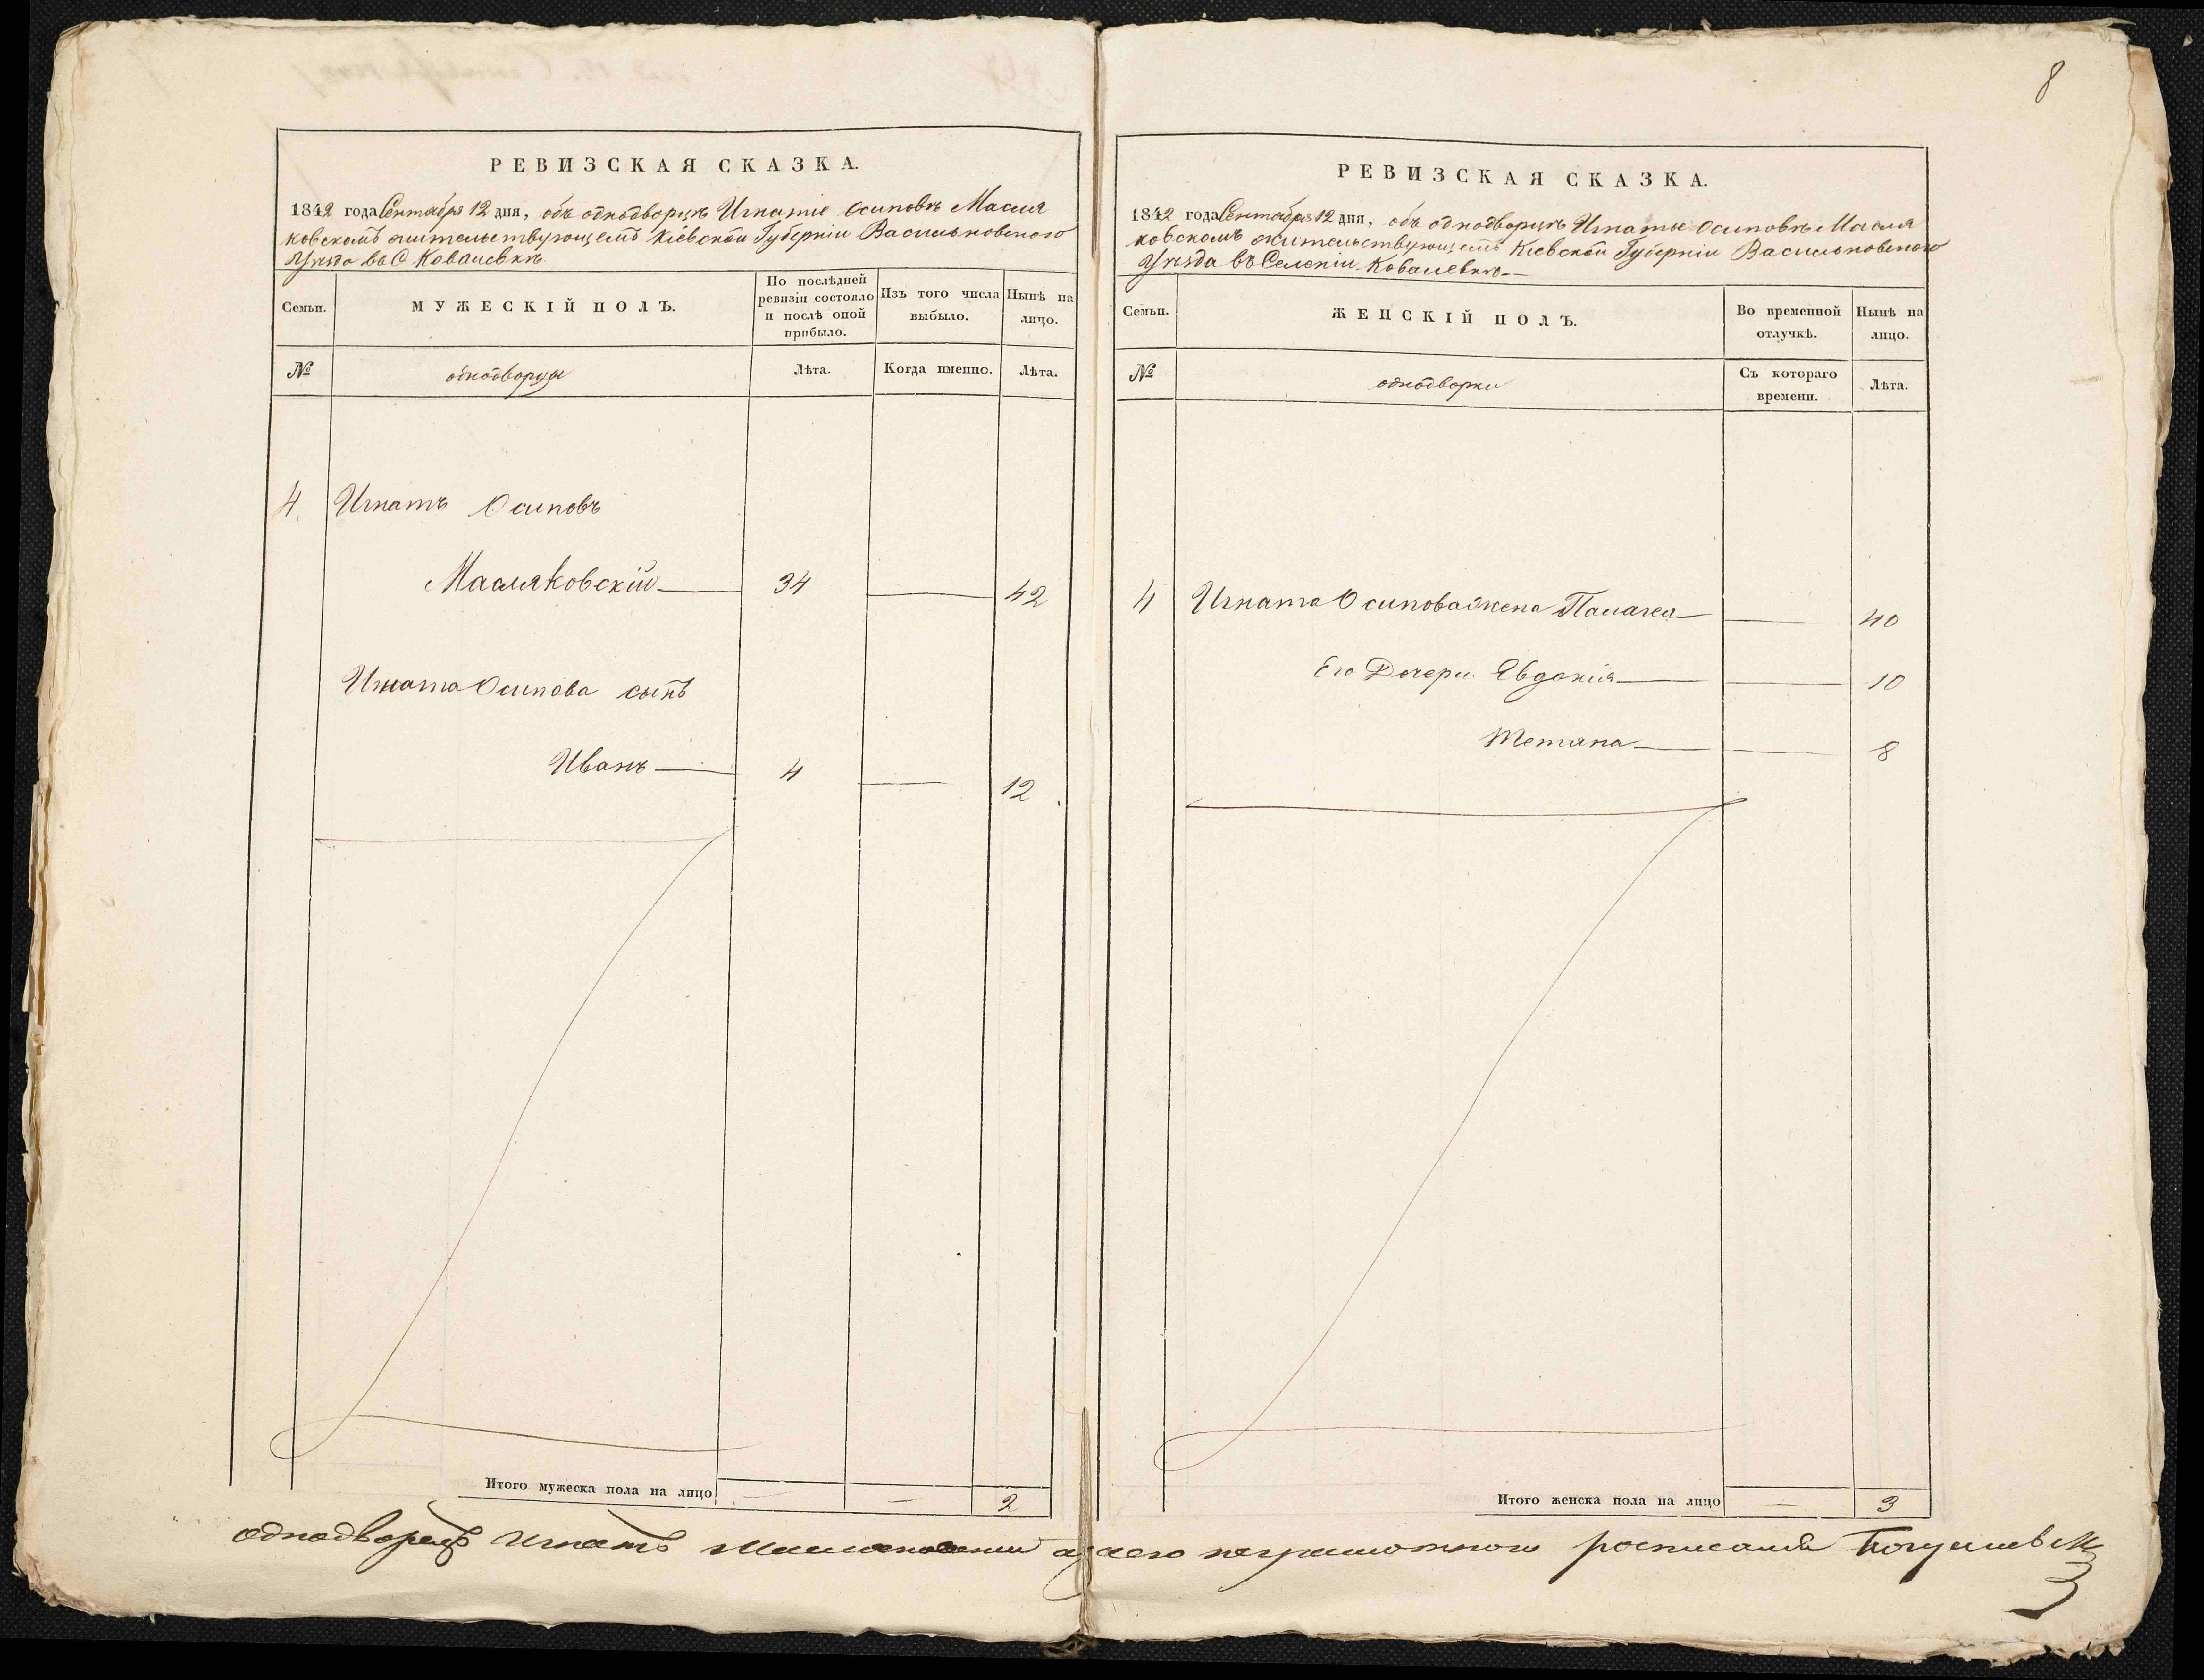 8
РЕВИЗСКАЯ СКАЗКА.
1842 года Сентября 12 дня, объ однодворцѣ Игнатіе Осиповѣ Масля
ковскомъ жительствующемъ Кіевской Губерніи Васильковского
Уѣзда въ С Ковалевкѣ
Семьи.
МУЖЕСКІЙ ПОЛЪ.
По послѣдней ревизіи состояло и послѣ оной прибыло.
Изъ того числа выбыло.
Нынѣ на лицо.
№
однодворцы
Лѣта.
Когда именно.
Лѣта.
4 Игнатъ Осиповъ
Масляковскій 34 42
Игната Осипова сынъ
Иванъ 4 12
Итого мужеска пола на лицо — — 2
РЕВИЗСКАЯ СКАЗКА.
1842 года Сентября 12 дня, объ однодворцѣ Игнатіе Осиповѣ Масля
ковскомъ жительствующемъ Кіевской Губерніи Васильковского
Уѣзда въ Селеніи Ковалевкѣ
Семьи.
ЖЕНСКІЙ ПОЛЪ.
Во временной отлучкѣ.
Нынѣ на лицо.
№
однодворки
Съ котораго времени.
Лѣта.
4 Игната Осипова жена Палажка 40
Его Дочери Евдокія 10
Тетяна 8
Итого женска пола на лицо — 3
однодворецъ Игнатъ Масляковскій а за его неграмотного росписался